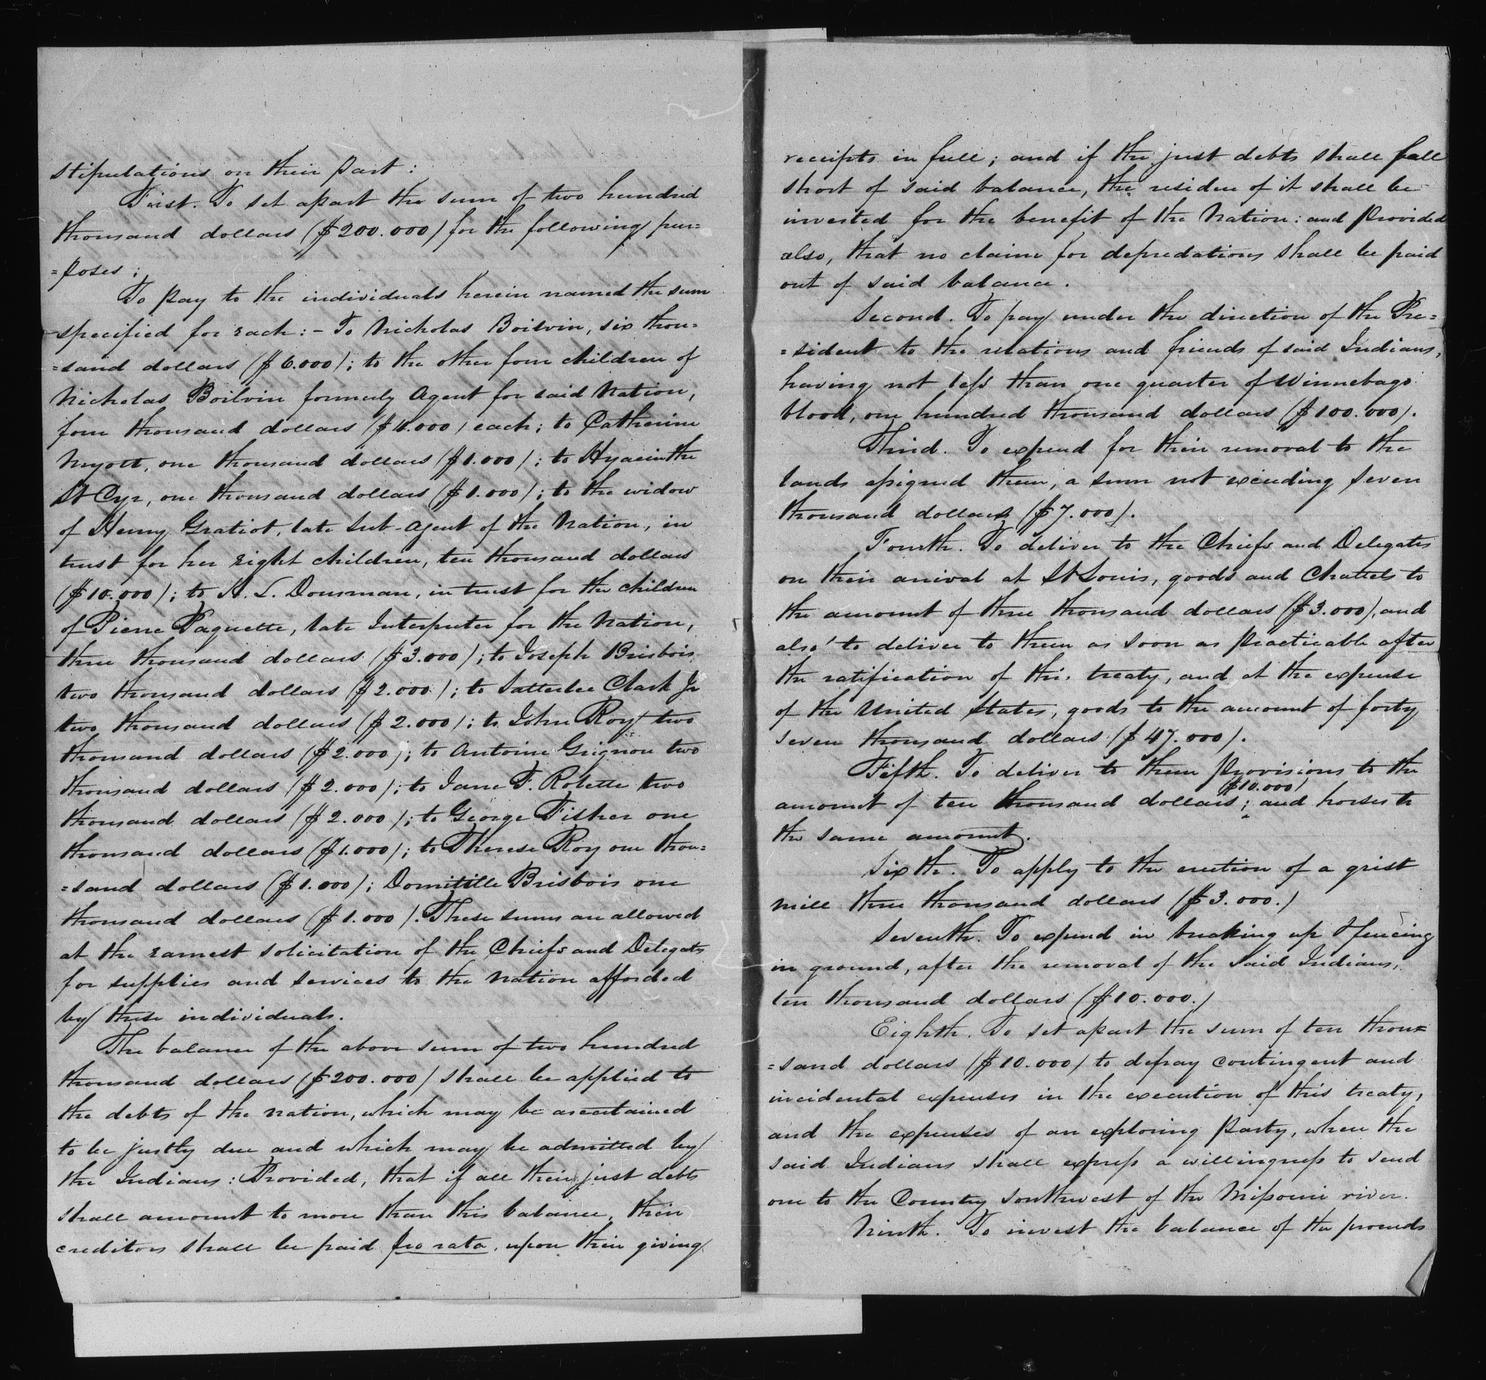 stipulations on their part:
First. To set apart the sum of two hundred
thousand dollars ($200.000) for the following pur=
=poses:
To pay to the individuals herein named the sum
specified for each: - To Nicholas Boilvin, six thou=
=sand dollars ($6.000); to the other four children of
Nicholas Boilvin formerly Agent for said Nation,
four thousand dollars ($4.000) each; to Catherine
Myott, one thousand dollars ($1.000); to Hyacinthe
St Cyr, one thousand dollars ($1.000); to the widow
of Henry Gratiot, late Sub-Agent of the Nation, in
trust for her eight children, ten thousand dollars
($10.000); to H. L. Dousman, in trust for the children
of Pierre Paquette, late Interpreter for the Nation,
three thousand dollars ($3.000); to Joseph Brisbois
two thousand dollars ($2.000); to Satterlee Clark Jr
two thousand dollars ($2.000); to John Roy two
thousand dollars ($2.000); to Antoine Grignon two
thousand dollars ($2.000); to Jane F. Rolette two
thousand dollars ($2.000); to George Fisher one
thousand dollars ($1.000); to Therese Roy one thou=
=sand dollars ($1.000); Domitille Brisbois one
thousand dollars ($1.000). These sums are allowed
at the earnest solicitation of the Chiefs and Delegates
for supplies and services to the nation afforded
by these individuals.
The balance of the above sum of two hundred
thousand dollars ($200.000) shall be applied to
the debts of the nation, which may be ascertained
to be justly due and which may be admitted by
the Indians: Provided, that if all their just debts
shall amount to more than this balance, their
creditors shall be paid pro rata, upon their giving
receipts in full; and if the just debts shall fall
short of said balance, the residue of it shall be
invested for the benefit of the Nation: and Provided
also, that no claim for depredations shall be paid
out of said balance.
Second. To pay under the direction of the Pre=
=sident to the relations and friends of said Indians,
having not less than one quarter of Winnebago
blood, one hundred thousand dollars ($100.000).
Third. To expend for their removal to the
lands assigned them, a sum not exceeding seven
thousand dollars ($7.000).
Fourth. To deliver to the Chiefs and Delegates
on their arrival at St Louis, goods and Chattels to
the amount of three thousand dollars ($3.000), and
also to deliver to them as soon as practicable after
the ratification of this treaty, and at the expense
of the United States, goods to the amount of forty
seven thousand dollars ($47.000).
Fifth. To deliver to them Provisions to the
amount of ten thousand dollars ($10.000); and horses to
the same amount.
Sixth. To apply to the erection of a grist
mill three thousand dollars ($3.000.)
Seventh. To expend in breaking up & fencing
in ground, after the removal of the said Indians,
ten thousand dollars ($10.000.)
Eighth. To set apart the sum of ten thou=
=sand dollars ($10.000) to defray contingent and
incidental expenses in the execution of this treaty,
and the expenses of an exploring Party, when the
said Indians shall express a willingness to send
one to the Country southwest of the Missouri river.
Ninth. To invest the balance of the proceeds